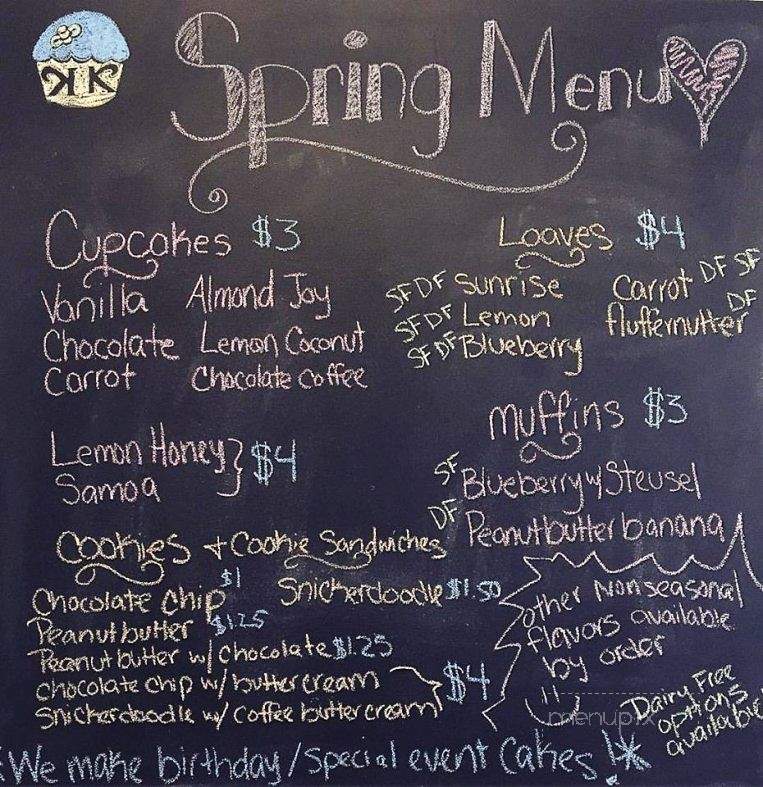 KK
Spring Menu
Cupcakes $3
Vanilla Almond Joy
Chocolate Lemon Coconut
Carrot Chocolate coffee
Lemon Honey } $4
Samoa
Loaves $4
SF DF Sunrise Carrot DF SF
SF DF Lemon fluffernutter DF
SF DF Blueberry
Muffins $3
SF Blueberry w/ Steusel
DF Peanutbutter banana
Cookies + Cookie Sandwiches
Chocolate chip $1 Snickerdoodle $1.50
Peanut butter $1.25
Peanut butter w/ chocolate $1.25
chocolate chip w/ butter cream } $4
Snickerdoodle w/ coffee butter cream
other Nonseasonal
flavors available
by order
Dairy Free
options
available!
*We make birthday/special event Cakes!*
menupix